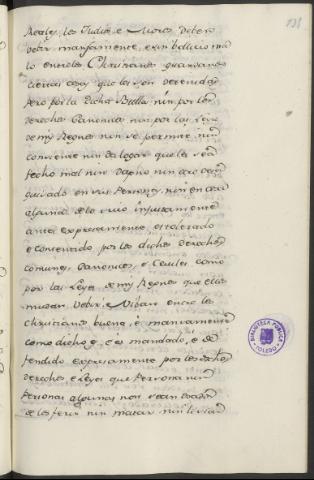 131
Reales, los Judios, e Moros deben
vevir mansamente, e sin bullicio ma
lo entre los Christianos guardando
ciertas cosas que les son defendidas
Pero por la dicha Bulla nin por los
derechos Canonicos nin por las Leyes
de mis Regnos non se permite nin
consiente nin da logar que les sea
fecho mal nin dapno nin
en sus Personas, nin en cosa
alguna de lo suio injustamente
antes expresamente es tolerado
e consentido, por los dichos derechos
comunes, Canonicos, e Ceviles como
por las Leyes de mis Regnos que ellos
puedan vevir, e vivan entre los
Christianos buena, e mansamente
como dicho es, e es mandado, e de
fendido expresamente por los dichos
derechos e Leyes que Persona nin
Personas algunas non sean osados
de los ferir nin matar nin
BIBLIOTECA PUBLICA
TOLEDO